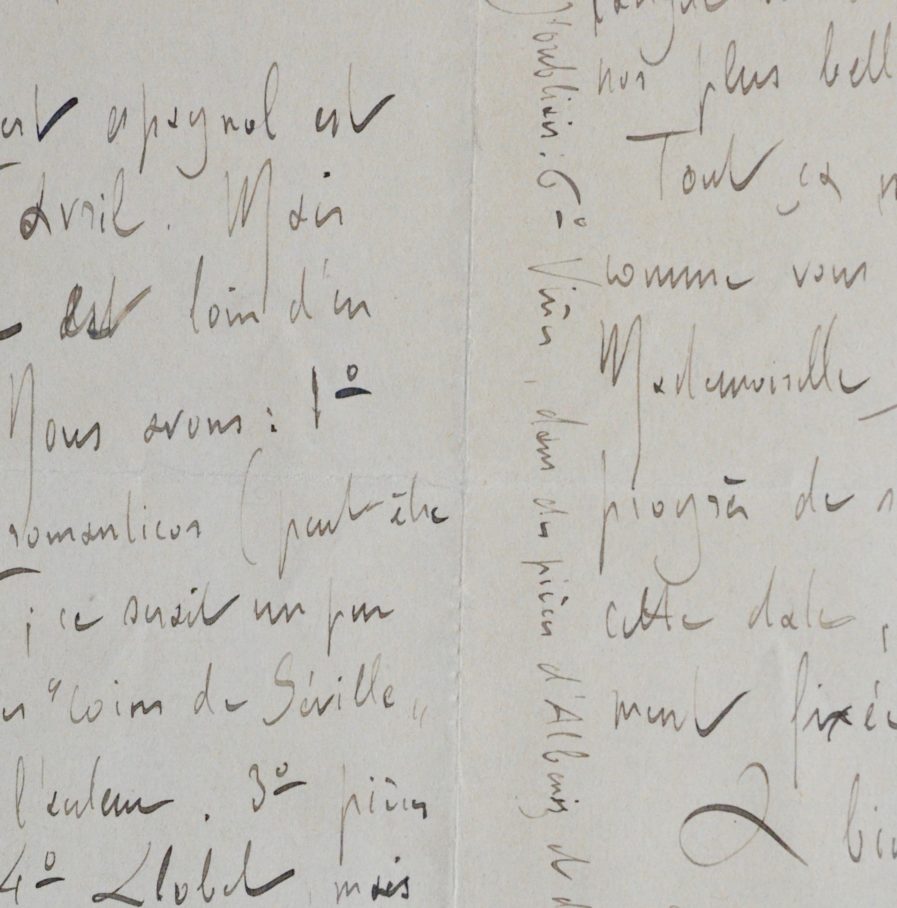 espagnol est
avril. Mais
est loin d'en
Nous avons : 1º
romanticos (peut-être
; ce serait un peu
"coins de Séville"
l'auteur. 3º pièces
4º Llobet, mais
J'oubliais : 6º Viñes, dans des pièces d'Albeniz et
nos plus bell
Tout ça
comme vous
Mademoiselle
progrès de
cette date,
ment fixée
A bien